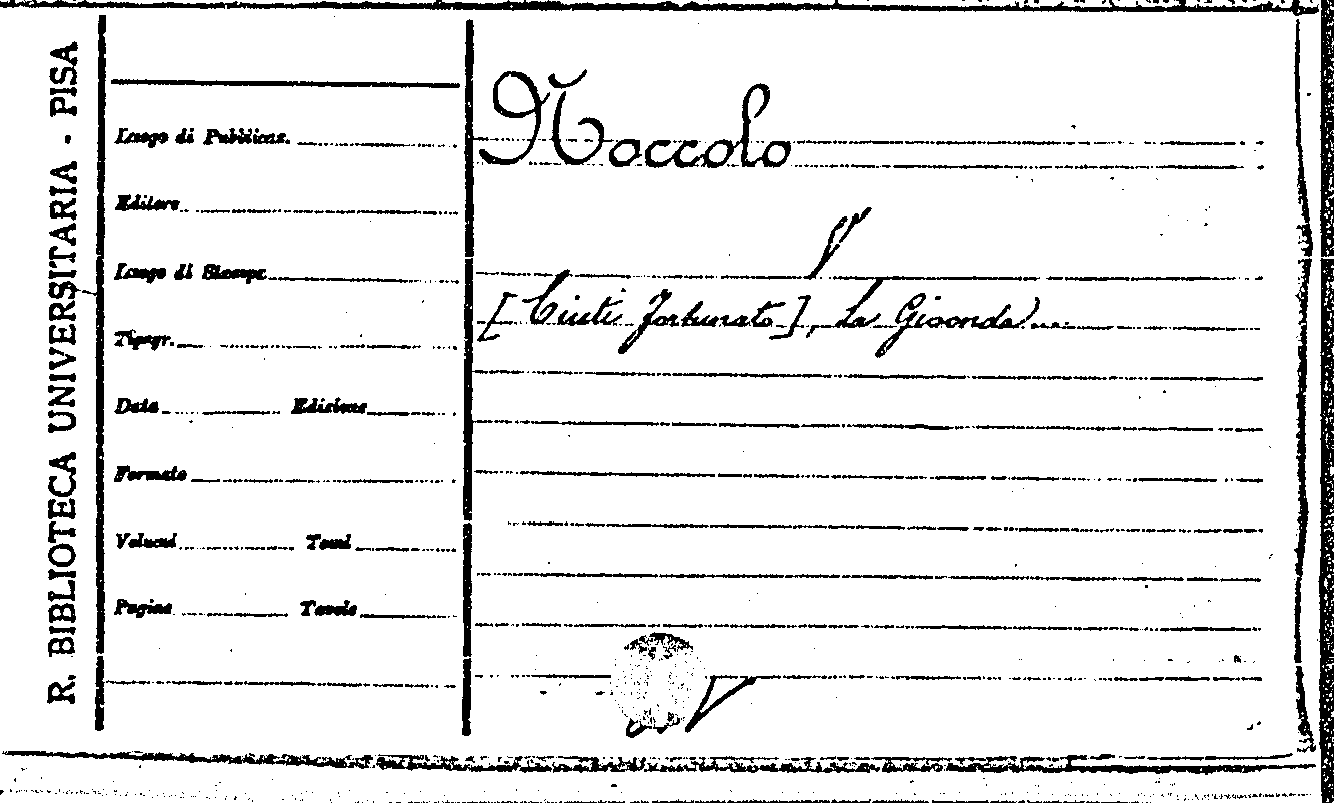 R. BIBLIOTECA UNIVERSITARIA - PISA
Luogo di Pubblicaz.
Editore
Luogo di Stampa
Tipogr.
Data Edizione
Formato
Volumi Tomi
Pagine Tavole
Noccolo
V
[Ciuti Fortunato], La Gioconda....
V